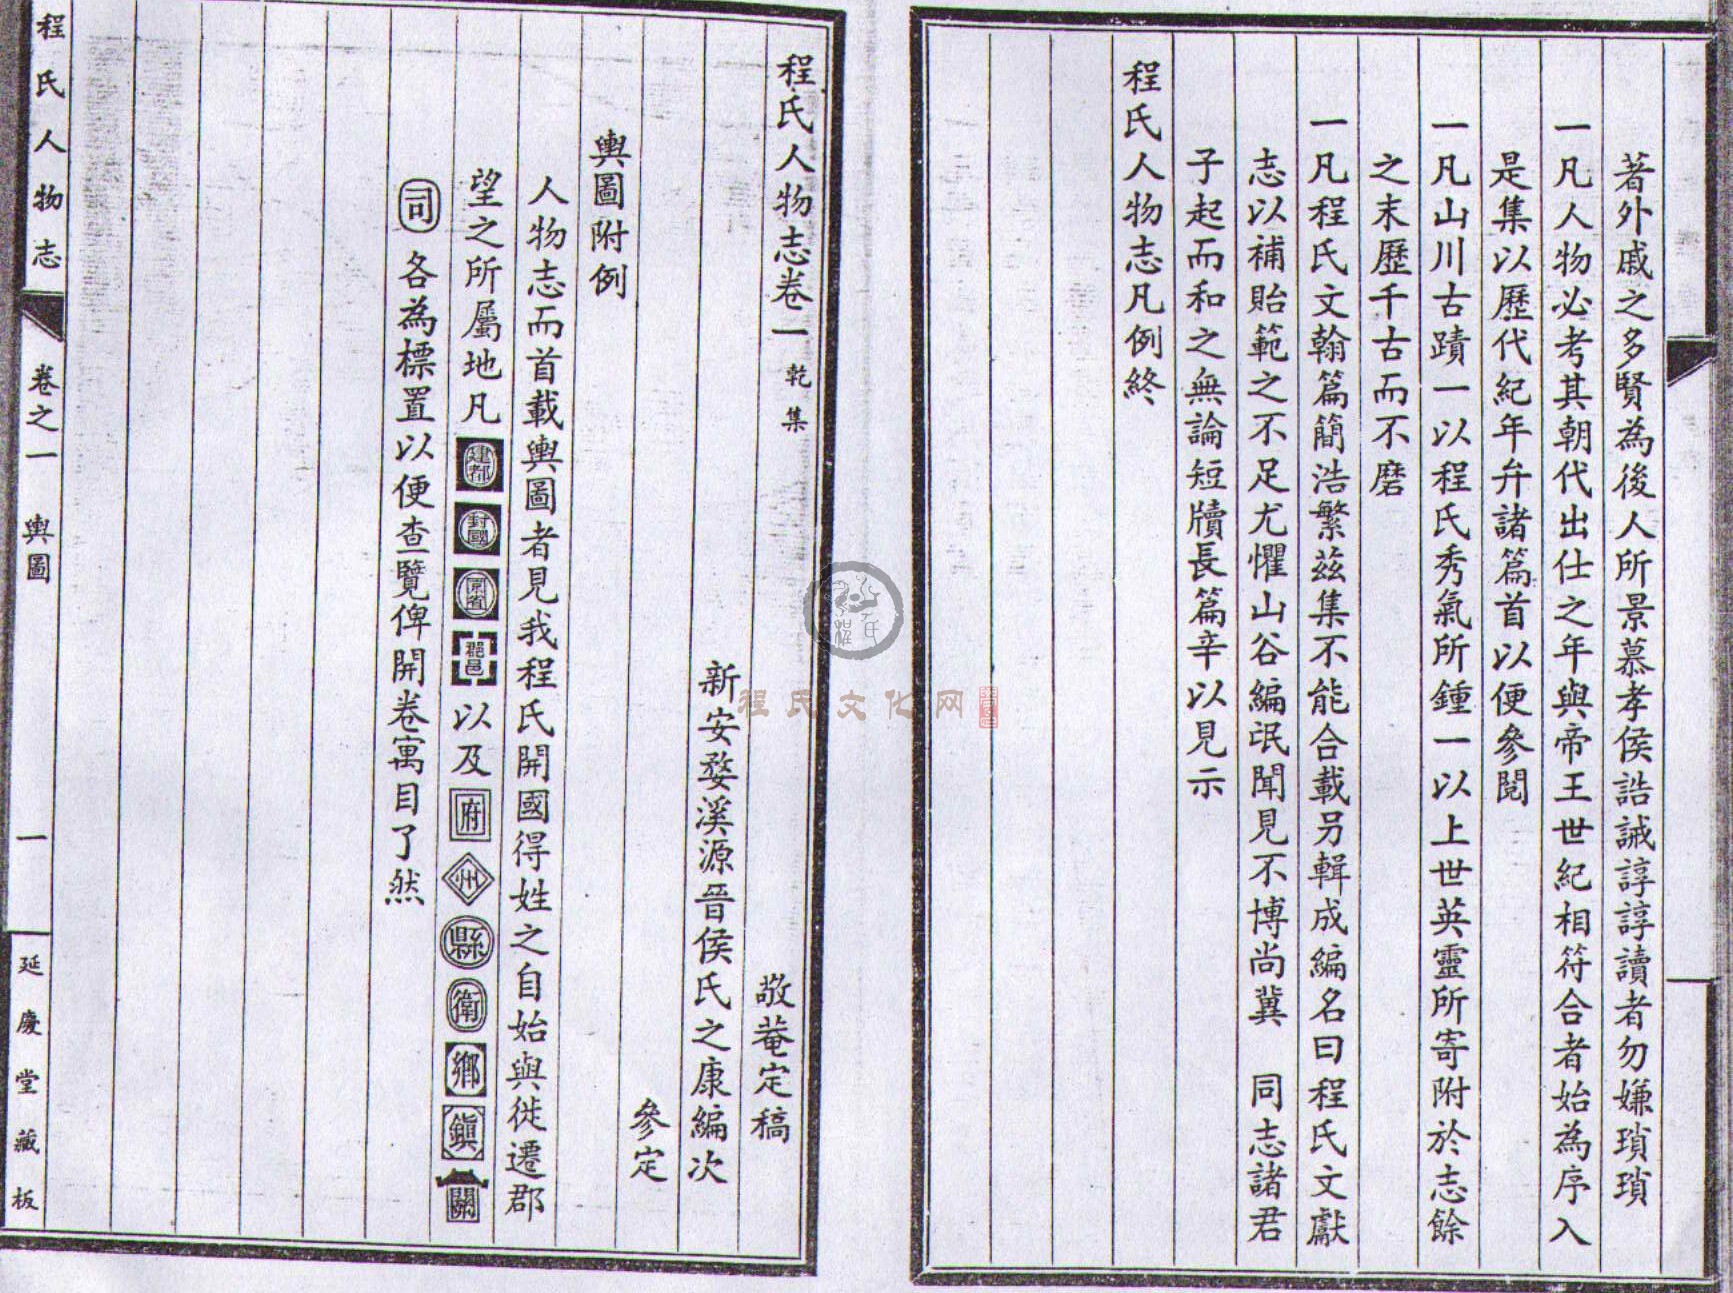 著外戚之多賢為後人所景慕孝侯誥誡諄諄讀者勿嫌瑣瑣
一凡人物必考其朝代出仕之年與帝王世紀相符合者始為序入
是集以歷代紀年弁諸篇首以便參閱
一凡山川古蹟一以程氏秀氣所鍾一以上世英靈所寄附於志餘
之末歷千古而不磨
一凡程氏文翰篇簡浩繁茲集不能合載另輯成編名曰程氏文獻
志以補貽範之不足尤懼山谷編氓聞見不博尚冀 同志諸君
子起而和之無論短牘長篇辛以見示
程氏人物志凡例終
程氏人物志卷一 乾集
敬菴定稿
新安婺溪源晉侯氏之康編次
參定
輿圖附例
人物志而首載輿圖者見我程氏開國得姓之自始與徙遷郡
望之所屬地凡建都封國京省郡邑以及府州縣衛鄉鎮關
司各為標置以便查覽俾開卷寓目了然
程氏人物志
卷之一 輿圖
一
延慶堂藏板
程氏文化网
程氏